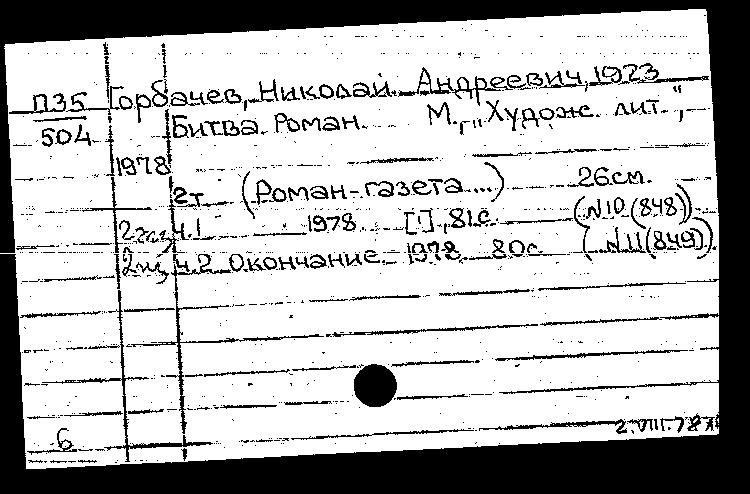 П35 Горбачев, Николай Андреевич, 1923
504 Битва. Роман. М., „Худож. лит.",
1978
2т (Роман-газета...) 26см.
2экз ч.1 1978 [1], 81с. (№10 (848))
2экз ч.2 Окончание. 1978. 80с. (№11(849)).
6
2.VIII.78